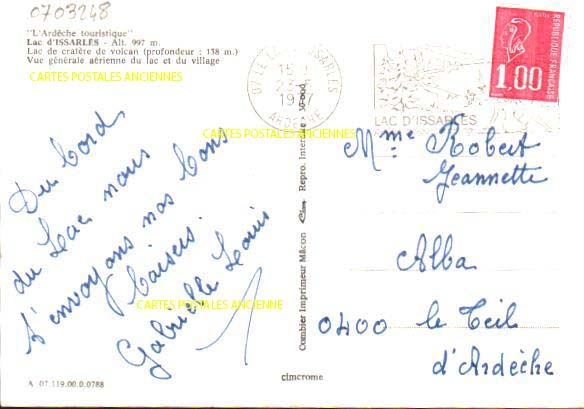 0703248
"L'Ardèche touristique"
Lac d'ISSARLÈS - Alt. 997 m.
Lac de cratère de volcan (profondeur : 138 m.)
Vue générale aérienne du lac et du village
CARTES POSTALES ANCIENNES
CARTES POSTALES ANCIENNES
CARTES POSTALES ANCIENNE
Du bord
du Lac nous
t'envoyons nos bons
baisers.
Gabrielle Louis
A 07.119.00.0.0788
Combier Imprimeur Mâcon
Repro. Interdite
cimcrome
07 LE LAC D'ISSARLES
ARDECHE
LAC D'ISSARLES
POSTES
REPUBLIQUE FRANÇAISE
1,00
Mme Robert
Jeannette
Alba
0400 le Teil
d'Ardèche